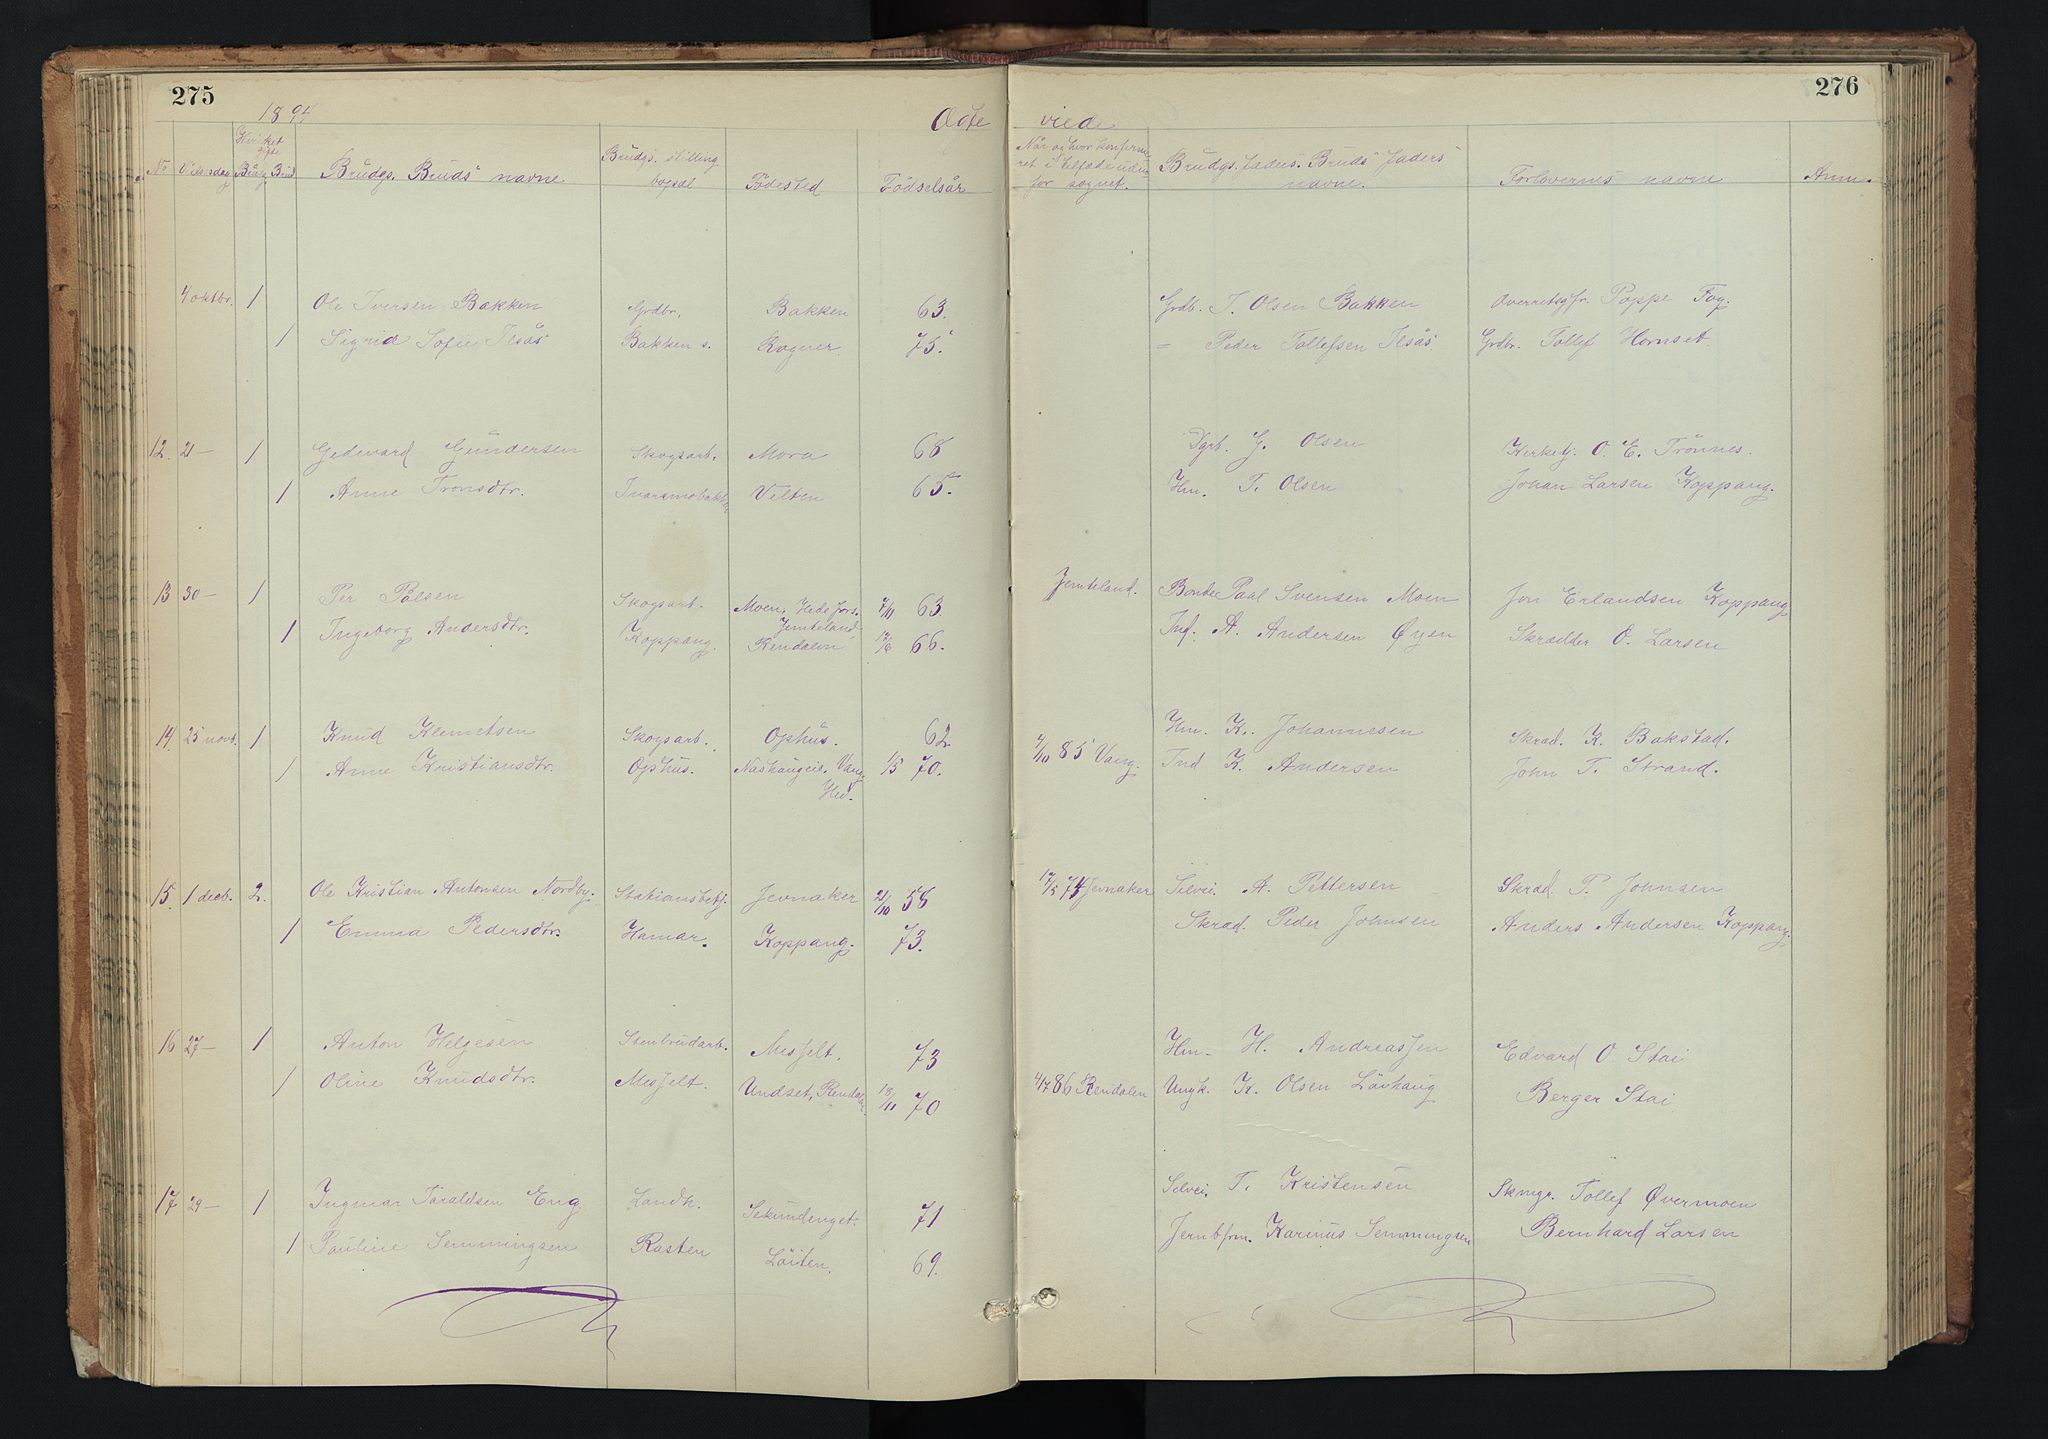 275
276
1894
Ægte viede
No Viesesdag Hvilket gifte Brudg. Brud Brudgs. Bruds navne Brudgs. stilling bopæl Fødested Fødselsår Når og hvor konfirmeret i tilfælde udenfor sognet. Brudgs. faders. Bruds faders navne. Forlovernes navne Anm.
4 oktbr. 1 Ole Iversen Bakken Grdbr. Bakken 63. Grdb. I. Olsen Bakken Overretsgfr. Poppe Fog.
1 Sigrid Sofie Ilsås Bakken s. Kogner 75. = Peder Tollefsen Ilsås Grdbr. Tollef Hornset.
12. 21 — 1 Gedevard Gundersen Skogsarb. Mora 68 G. Olsen Kirketj. O. E. Trönnes.
1 Anne Tronsdtr. Ivarsmobakken Velten 65. Hm. T. Olsen Johan Larsen Koppang.
13 30 — 1 Per Pålsen Skogsarb. Moen, Hede Fors. Jemteland 7/11 63 Jemteland. Bonde Paal Svensen Moen Jon Erlandsen Koppang
1 Ingeborg Andersdtr. Koppang. Rendalen 12/6 66. Ind. A. Andersen Øyen Skrædder O. Larsen
14. 25 novb. 1 Knud Klemetsen Skogsarb. Ophus. 62 Hm. K. Johannesen Skræd. K. Bakstad.
1 Anne Kristiansdtr. Ophus. Naskaugeie, Vang Hed. 1/5 70. 4/10 85 Vang. Ind K. Andersen John T. Strand.
15. 1 decb. 2. Ole Kristian Antonsen Nordby. Stationsbetj. Jevnaker 21/10 58 17/5 74 Jevnaker Selvei. A. Pettersen Skræd. P. Johnsen
1 Emma Pedersdtr. Hamar. Koppang. 73. Skræd. Peder Johnsen Anders Andersen Koppang.
16 27 — 1 Anton Helgesen Stenbrudarb. Messelt. 73 Hm. H. Andreassen Edvard O. Stai
1 Oline Knudsdtr. Messelt. Undset, Rendalen 18/11 70 4/7 86 Rendalen Ungk. K. Olsen Lövhaug Berger Stai
17 29 — 1 Ingmar Taraldsen Eng Landh. Sekundenget. 71 Selvei. T. Kristensen Skmgr. Tollef Øvermoen
1 Pauline Semmingsen Rasten Löiten. 69. Jernbfrm. Karinus Semmingsen Bernhard Larsen